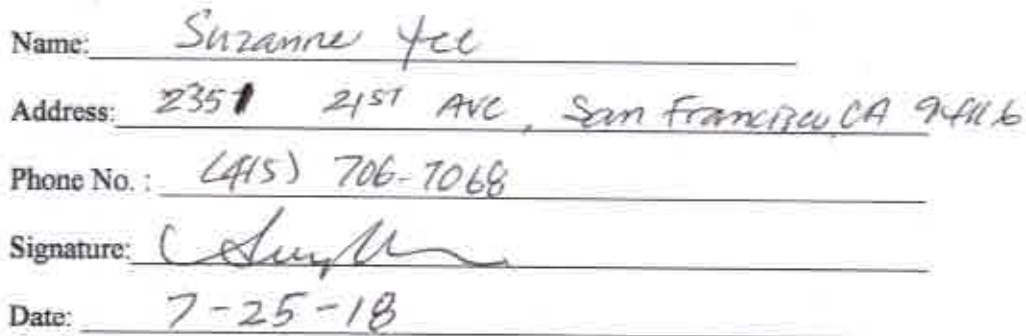 Name: Suzanne Yee
Address: 2351 21ST AVE, San Francisco, CA 94116
Phone No. : (415) 706-7068
Signature:
Date: 7-25-18